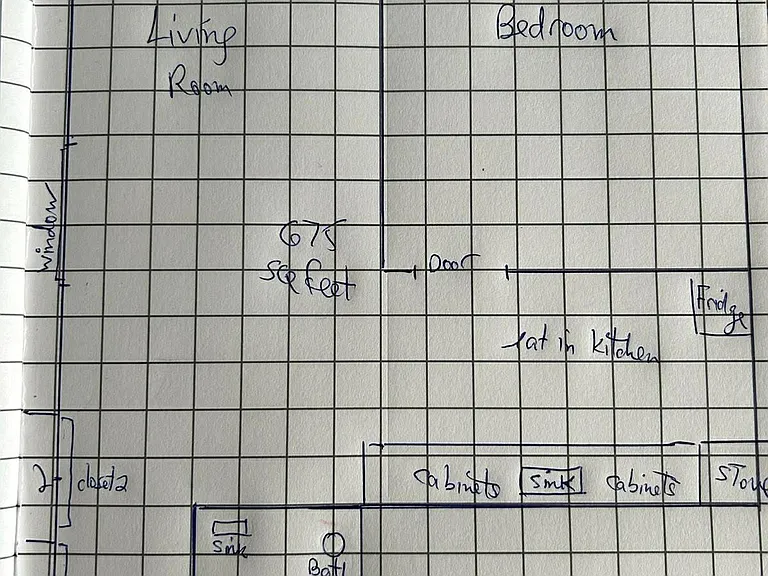 Living
Room
Bedroom
window
675
sqe feet
Door
Fridge
eat in kitchen
2
closet 2
Cabinets
Sink
Cabinets
Sink